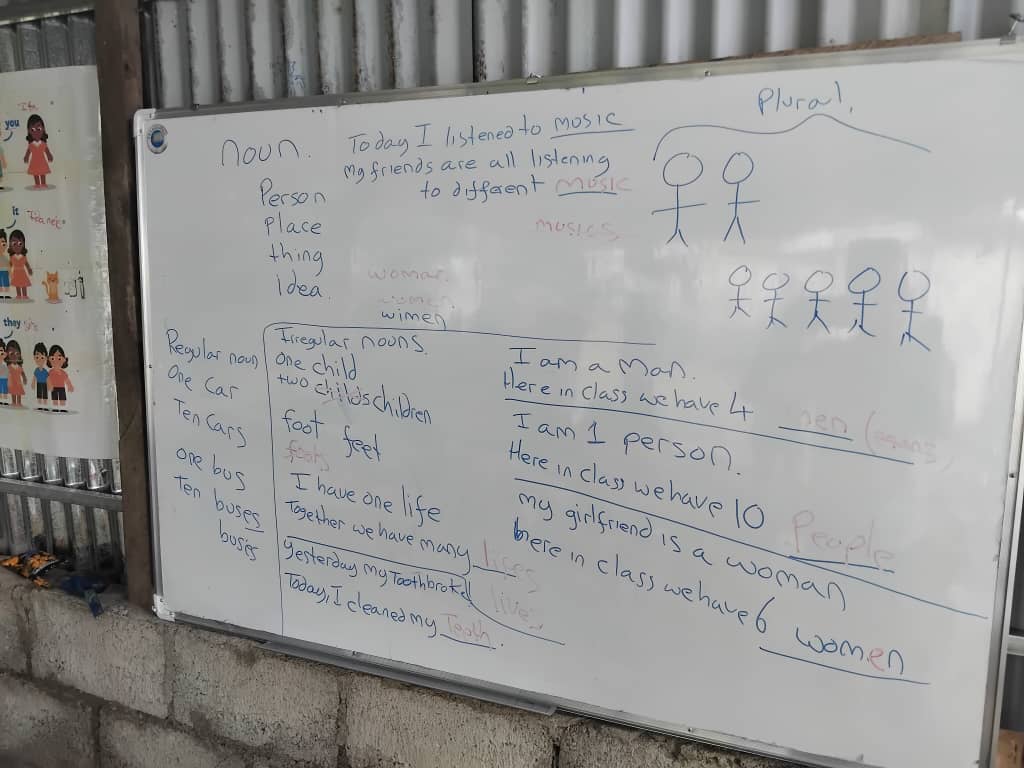 noun.
Person
Place
thing
idea.
Today I listened to music
my friends are all listening
to different music
musics
Plural.
woman
women
wimen
Regular noun
One Car
Ten Cars
one bus
Ten buses
buses
Irregular nouns.
One child
two childs children
foot feet
foots
I have one life
Together we have many lifes
lives
Yesterday my Tooth broke
Today, I cleaned my Teeth.
I am a man.
Here in class we have 4 men
I am 1 person.
Here in class we have 10 People
my girlfriend is a woman
here in class we have 6 women
you
it
they